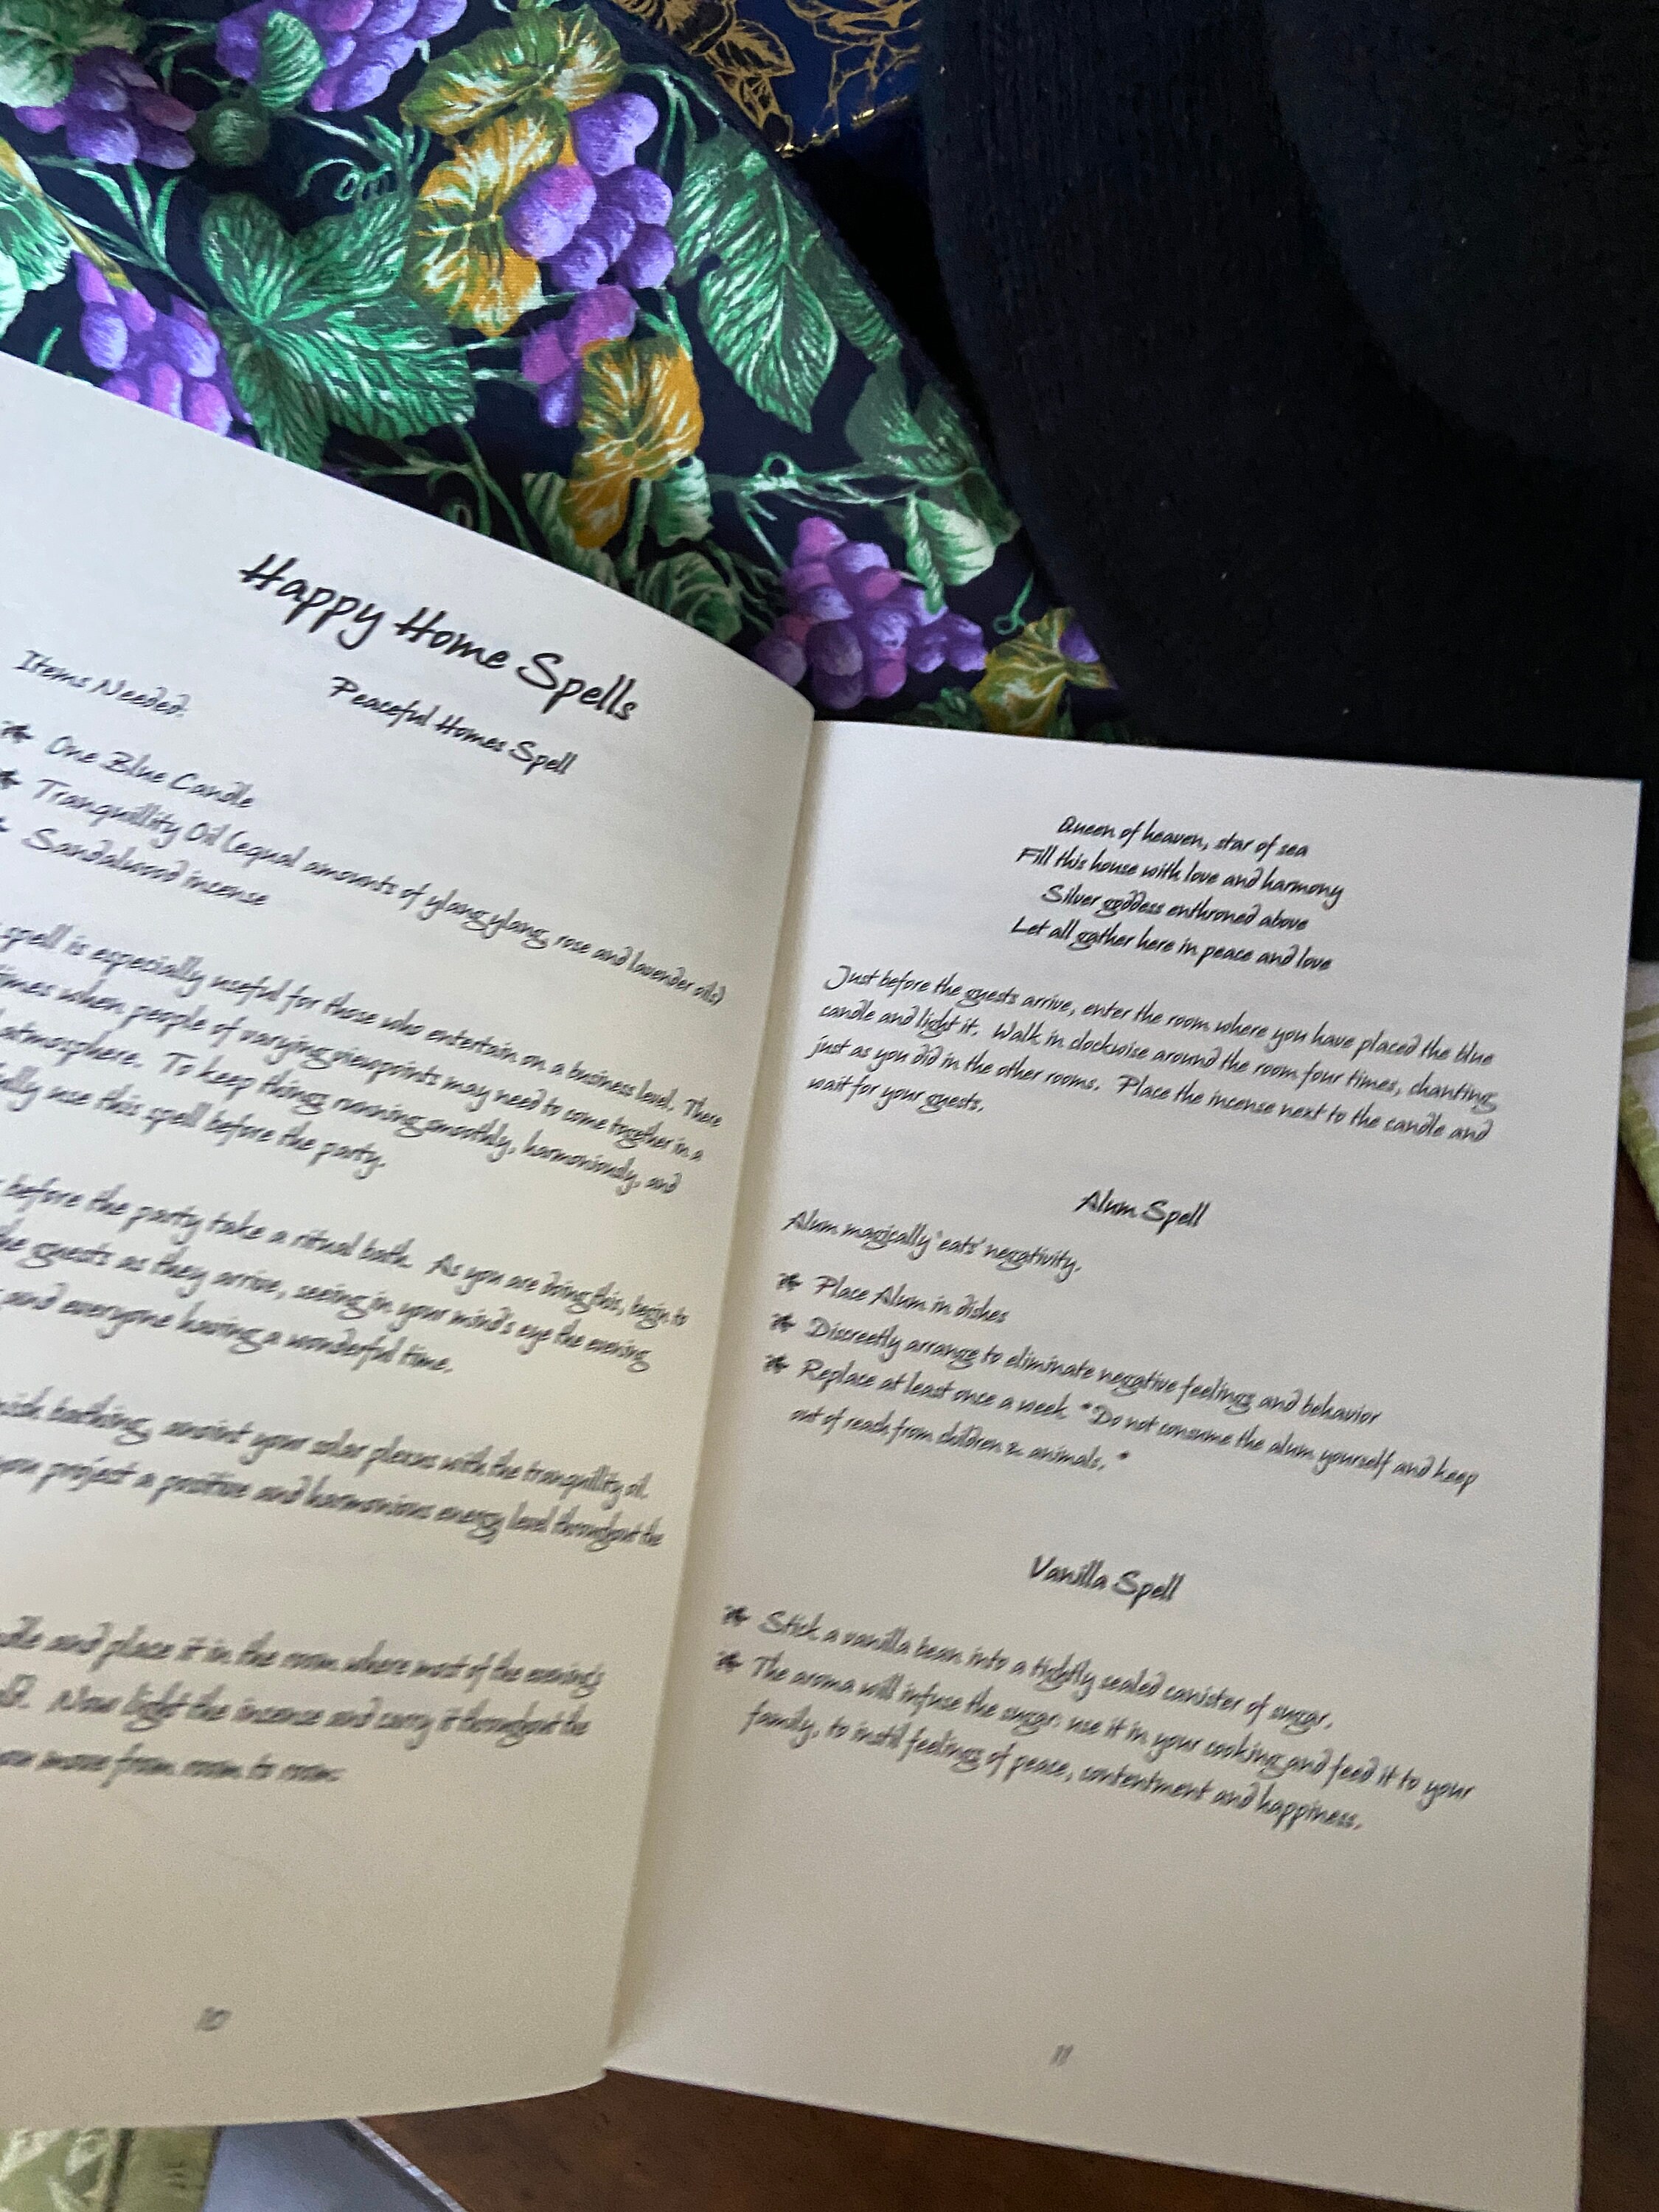 Happy Home Spells
Peaceful Homes Spell
Items Needed:
One Blue Candle
Tranquillity Oil (equal amounts of ylang ylang, rose and lavender oils)
Sandalwood incense
spell is especially useful for those who entertain on a business level. There
times when people of varying viewpoints may need to come together in a
atmosphere. To keep things running smoothly, harmoniously, and
use this spell before the party.
before the party take a ritual bath. As you are doing this, begin to
the guests as they arrive, seeing in your mind's eye the evening
and everyone having a wonderful time.
bathing, anoint your solar plexus with the tranquillity oil.
you project a positive and harmonious energy level throughout the
and place it in the room where most of the evening's
Now light the incense and carry it throughout the
move from room to room:
10
Queen of heaven, star of sea
Fill this house with love and harmony
Silver goddess enthroned above
Let all gather here in peace and love
Just before the guests arrive, enter the room where you have placed the blue
candle and light it. Walk in clockwise around the room four times, chanting
just as you did in the other rooms. Place the incense next to the candle and
wait for your guests.
Alum Spell
Alum magically 'eats' negativity.
Place Alum in dishes
Discreetly arrange to eliminate negative feelings and behavior
Replace at least once a week *Do not consume the alum yourself and keep
out of reach from children & animals. *
Vanilla Spell
Stick a vanilla bean into a tightly sealed canister of sugar.
The aroma will infuse the sugar: use it in your cooking and feed it to your
family, to instill feelings of peace, contentment and happiness.
11